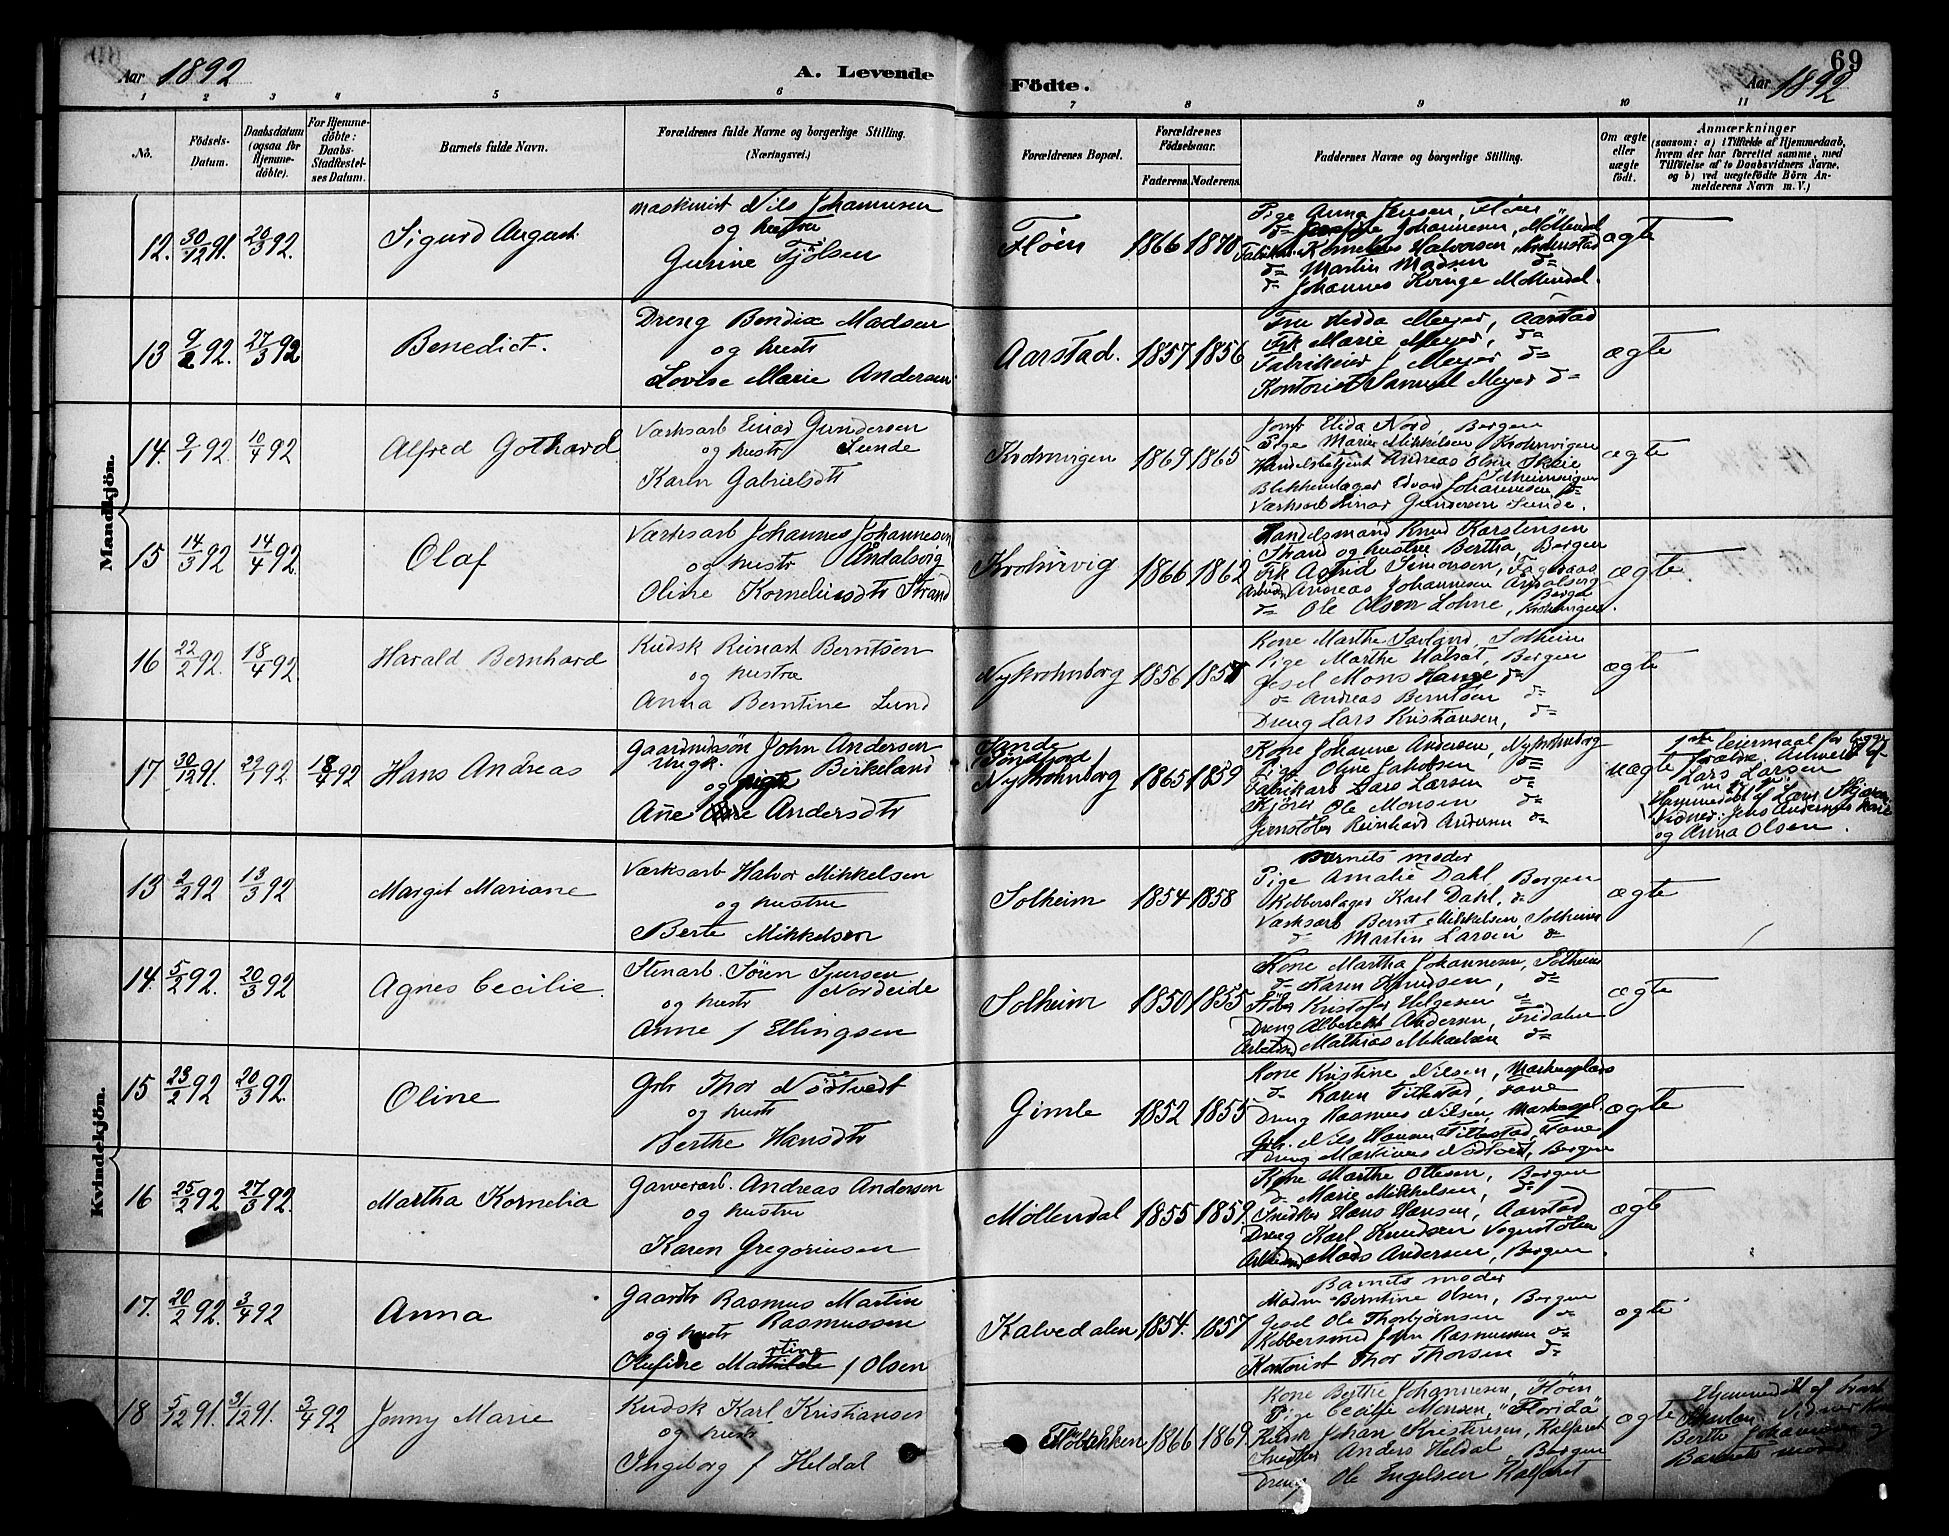 Aar 1892
A. Levende
Födte.
69
Aar 1892
1 2 3 4 5 6 7 8 9 10 11
No.
Födsels-
Datum.
Daabsdatum
(ogsaa för
Hjemme-
döbte).
For Hjemme-
döbte:
Daabs-
Stadfæstel-
ses Datum.
Barnets fulde Navn.
Forældrenes fulde Navne og borgerlige Stilling.
(Næringsvei.)
Forældrenes Bopæl.
Forældrenes
Födselsaar.
Faderens. Moderens.
Faddernes Navne og borgerlige Stilling.
Om ægte
eller
uægte
födt.
Anmærkninger
(saasom: a) i Tilfælde af Hjemmedaab,
hvem der har forrettet samme, med
Tilföielse af to Daabsvidners Navne,
og b) ved uægtefödte Börn An-
melderens Navn m. V.)
Mandkjön.
12. 30/12 91. 20/3 92. Sigurd August.
maskinist Nils Johannesen
og hustru
Gurine Tjölsen
Flöen 1866 1870
Pige Anna Jensen, Flöen
Johannesen, Möllendal
Kornelius Halvorsen
do Martin Madsen do
do Johannes Kvinge Möllendal.
ægte
13 9/2 92. 27/3 92 Benedict.
Dreng Bendix Madsen
og hustr
Lovise Marie Andersen
Aarstad. 1857 1856
Fru Hedda Meyer, Aarstad
Frk Marie Meyer, do
Fabrikeier J Meyer do
Kontorist Samuel Meyer do
ægte
14. 9/1 92. 10/4 92 Alfred Gothard
Værksarb Einar Gundersen
og hustr Sunde
Karen Gabrielsdtr
Krohnvigen 1869 1865
Jomf Elida Nord, Bergen
Pige Marie Mikkelsen, Krohnvigen
Handelsbetjent Andreas Olsen Skeie
Solheimsvigen
Blikkenslager Edvard Johannesen do
Værksarb Einar Gundersen Sunde.
ægte
15 14/3 92 14/4 92. Olaf
Værksarb Johannes Johannesen
og hustr Åndalsvig
Oline Korneliusdtr Strand
Krohnvig 1866 1862
Handelsmand Knud Karstensen
Strand og hustru Bertha, Bergen
Frk Astrid Simonsen,
Andreas Johannesen Åndalsvig
Bergen
do Ole Olsen Lohne, Krohnvigen.
ægte
16 22/2 92. 18/4 92. Harald Bernhard
Kudsk Reinart Berntsen
og hustru
Anna Berntine Lund
Nykrohnborg 1856 1857
Kone Marthe Sælland, Solheim
Pige Marthe Halsøt, Bergen
Gesel Mons Hauge do
do Andreas Berntsen do
Dreng Lars Kristiansen, do
ægte
17 30/12 91. 22/1 92 18/4 92 Hans Andreas
Gaardmdsön John Andersen
Ungk. Birkeland
og pige
Ane Andersdtr
Sande
Söndfjord
Nykrohnborg 1865 1859
Kone Johanne Andersen, Nykrohnborg
Pige Oline Jakobsen do
Fabrikarb Lars Larsen do
Kjörer Ole Monsen do
Jernstöber Reinhard Andersen do
uægte
1ste leiermaal for begge
Forældre. Anmeldt af
Lars Larsen
Hjemmedöbt af Lars
Vidner: Jens Andersens kone
og Anna Olsen.
Kvindekjön.
13 2/2 92 13/3 92 Margit Mariane
Værksarb Halvor Mikkelsen
og hustru
Berte Mikkelsen
Solheim 1854 1858
Barnets moder
Pige Amalie Dahl, Bergen
Kobberslager Karl Dahl, do
Værksarb Bernt Mikkelsen, Solheim
do Martin Larsen do
ægte
14. 5/2 92. 20/3 92 Agnes Cecilie.
Stenarb. Sören Sjursen
og hustr Nordeide
Anne f Ellingsen
Solheim 1850 1855
Kone Martha Johannesen, Solheim
do Karen Knudsen, do
Kristofer Helgesen do
Dreng Alberekt Andersen, Fridalen
Arbeider Mathias Mikaelsen do
ægte
15 23/2 92 20/3 92. Oline
Gbr Thor Nödtvedt
og hustr
Berthe Hansdtr
Gimle 1852 1855
Kone Kristine Nilsen, Markusplads
do Karen Tittestad, Fane
Dreng Rasmus Nilsen, Markuspl.
Gbr. Nils Hansen Tittestad, Fane
Dreng Martinus Nödtvedt, Bergen
ægte
16 25/2 92 27/3 92. Martha Kornelia
Garverarb. Andreas Andersen
og hustru
Karen Gregoriusen
Möllendal 1855 1859.
Kone Marthe Ottesen, Bergen
do Marie Mikkelsen, do
Snedker Hans Hansen, Aarstad
Dreng Karl Knudsen Vognstölen
Arbeider Mads Andersen, Bergen.
ægte
17. 20/2 92. 3/4 92 Anna
Gaardbr Rasmus Martin
og hustr Rasmussen
Olufine f Olsen
Kalvedalen 1854. 1857
Barnets moder
Madm Berntine Olsen, Bergen
Gesel Ole Thorbjörnsen do
Kobbersmed John Rasmussen do
Kontorist Thor Thorsen do
ægte
18 5/12 91. 31/12 91. 3/4 92 Jenny Marie
Kudsk Karl Kristiansen
og hustr
Ingeborg f Heldal
Flöbakken 1866 1869.
Kone Berthe Johannesen, Flöen
Pige Cecilie Monsen, "Florida"
Kudsk Johan Kristensen, Kalfaret
Snedker Anders Heldal Bergen
Dreng Ole Engelsen Kalfaret
ægte
Hjemmedöbt af
Vidner
Berthe Johannesen og
Barnets moder